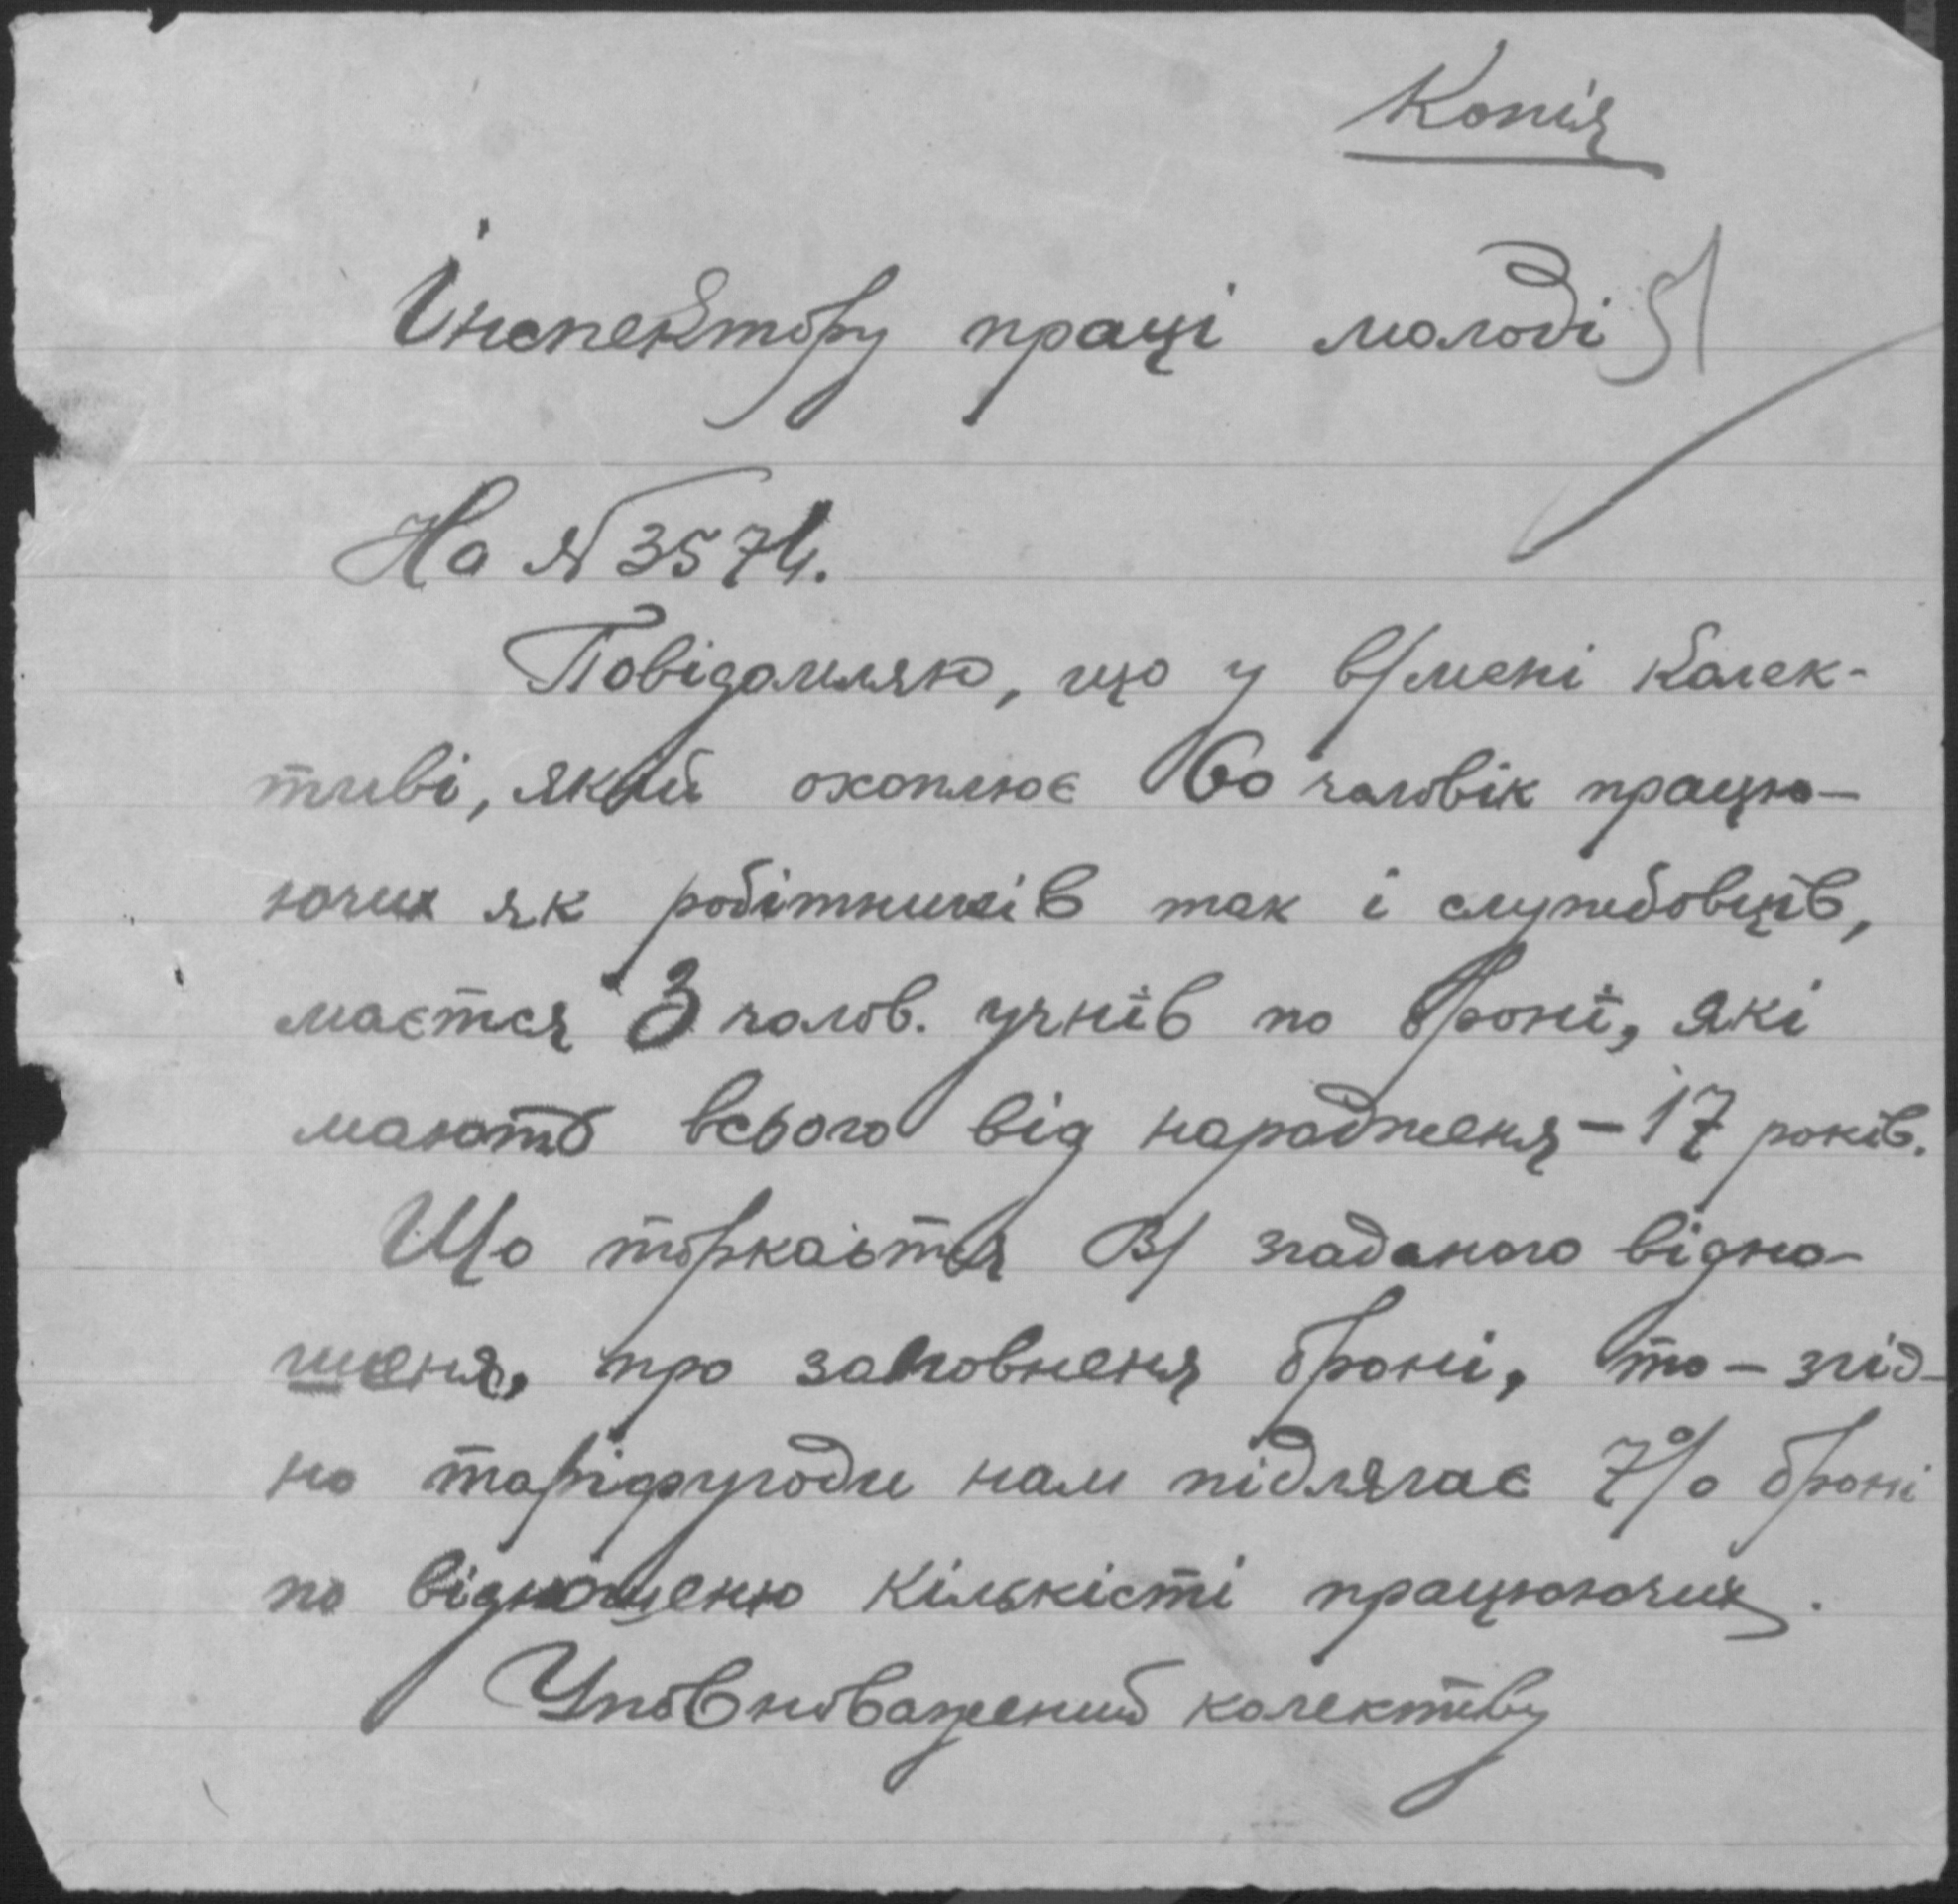 Копія
Інспектору праці молоді 51
На № 3574.
Повідомляю, що у в/мені колек-
тиві, який охоплює 60 чоловік працю-
ючих як робітників так і службовців,
маєтся 3 чолов. учнів по броні, які
мають всього від народженя - 17 років.
Що торкаєтся В/ згаданого відно-
шеня, про заповненя броні, то - згід-
но таріфугоди нам підлягає 7% броні
по відношеню кількісті працюючих.
Уповноважений колективу